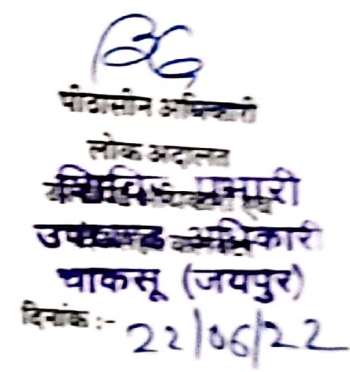 पीठासीन अधिकारी
लोक अदालत
शिविर प्रभारी
उपखण्ड अधिकारी
चाकसू (जयपुर)
दिनांक :- 22/06/22